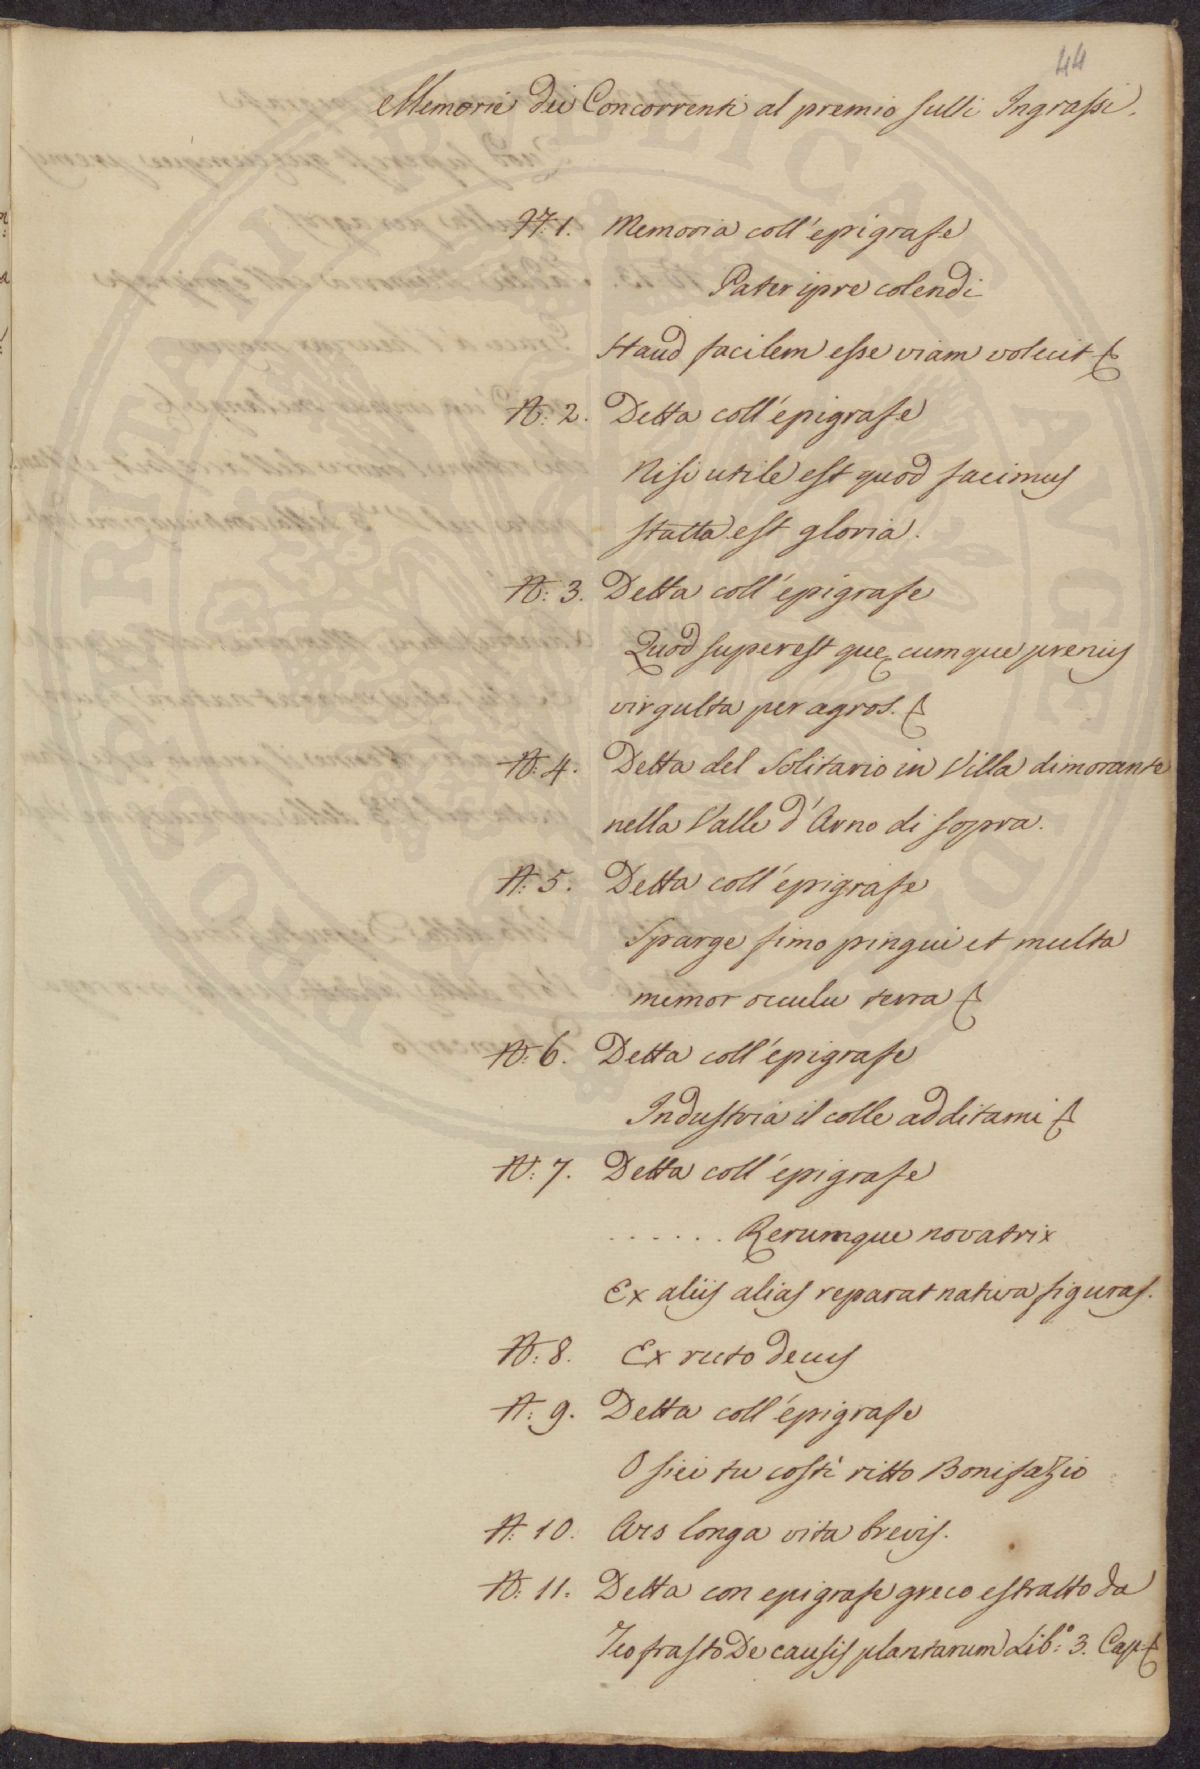 44
Memorie dei Concorrenti al premio sulli Ingrassi.
N. 1. Memoria coll'epigrafe
Pater ipse colendi
Haud facilem esse viam voluit &
N: 2. Detta coll'epigrafe
Nisi utile est quod facimus
stulta est gloria.
N: 3. Detta coll'epigrafe
Quod superest quecumque premis
virgulta per agros. &
N: 4. Detta del Solitario in Villa dimorante
nella Valle d'Arno di sopra.
N: 5. Detta coll'epigrafe
Sparge fimo pingui et multa
memor occulu terra &
N: 6. Detta coll'epigrafe
Industria il colle additami &
N: 7. Detta coll'epigrafe
. . . . . . Rerumque novatrix
Ex aliis alias reparat natura figuras.
N: 8. Ex ructo decus
N: 9. Detta coll'epigrafe
O siei tu costì ritto Bonifazio
N: 10. Ars longa vita brevis.
N: 11. Detta con epigrafe greco estratto da
Teofrasto De causis plantarum Lib.º 3. Cap &